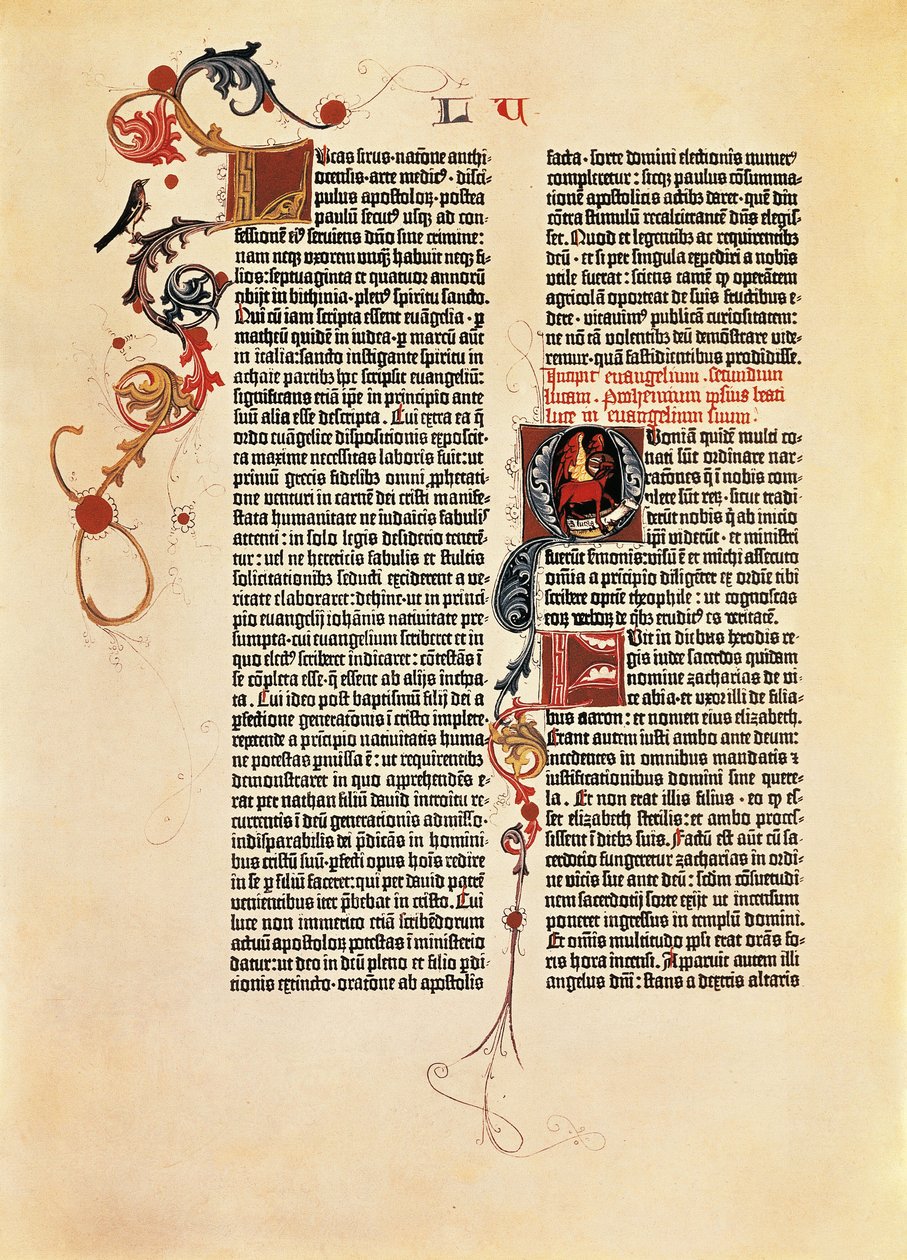 L U
Lucas sirus·natōne anthi-
ocensis·arte medicꝰ·disci-
pulus apostoloꝝ·postea
paulū secutꝰ usqꝫ ad con-
fessionē eiꝰ serviens dn̄o sine crimine:
nam neqꝫ uxorem unqꝫ habuit neqꝫ fi-
lios: septuaginta et quatuor annorū
obijt in bithinia·plenꝰ spiritu sancto.
Qui cū iam scripta essent euāgelia·ꝑ
matheū quidē in iudea·ꝑ marcū aūt
in italia: sancto instigante spiritu in
achaie partibꝫ hoc scripsit euangeliū:
significans etiā ip̄e in principio ante
suū alia esse descripta. Cui extra ea q̄
ordo euāgelice dispositionis exposcit·
ea maxime necessitas laboris fuit: ut
primū grecis fidelibꝫ omni ꝓphetati-
one venturi in carnē dei cristi manife-
stata humanitate ne iudaicis fabulis
attenti: in solo legis desiderio tenerē-
tur: vel ne hereticis fabulis et stultis
solicitationibꝫ seducti exciderent a ve-
ritate elaboraret: dehīnc·ut in princi-
pio euangelij iohānis nativitate pre-
sumpta·cui evangelium scriberet et in
quo electꝰ scriberet indicaret: cōtestās ī
se cōpleta esse·q̄ essent ab alijs incho-
ta. Cui ideo post baptismū filij dei a
ꝑfectione generatōnis ī cristo implete·
repetende a principio nativitatis huma-
ne potestas ꝑmissa ē: ut requirentibꝫ
demonstraret in quo apprehendēs e-
rat per nathan filiū david introitu re-
currentis ī deū generationis admisso·
indisparabilis dei p̄dicās in homini-
bus cristū suū·ꝑfecti opus hoīs redire
in se ꝑ filiū faceret: qui per david patrē
venientibus iter p̄bebat in cristo. Cui
luce non immerito etiā scribēdorum
actuū apostoloꝝ potestas ī ministerio
datur: ut deo in deū pleno et filio ꝑdi-
tionis extincto·oratōne ab apostolis
facta·sorte domini electionis numerꝰ
completetur: sicqꝫ paulus cōsumma-
tionē apostolicis actibꝫ daret·quē diu
cōtra stimulū recalcitrantē dn̄s elegis-
set. Quod et legentibꝫ ac requirentibꝫ
deū·et si per singula expediri a nobis
utile fuerat: sciens tamē ꝙ operātem
agricolā oporteat de suis fructibus e-
dere·vitavimꝰ publicā curiositatem:
ne nō tā volentibꝫ deū demōstrare vide-
remur·quā fastidientibus prodidisse.
Incipit evangelium secundum
lucam. Prohemium ipsius beati
luce in evangelium suum:
Quoniā quidē multi co-
nati sūt ordinare nar-
rationes q̄ ī nobis com-
plete sūt reꝝ·sicut tradi-
derūt nobis q̄ ab inicio
ip̄i viderūt·et ministri
fuerūt sermonis: visū ē et michi assecuto
omīa a pricipio diligēter ex ordīe tibi
scribere optīe theophile: ut cognoscas
eoꝝ verboꝝ de qͥbꝫ eruditꝰ es veritatē.
Fuit in diebus herodis re-
gis iudee sacerdos quidam
nomine zacharias de vi-
ce abia·et uxor illi de filia-
bus aaron: et nomen eius elizabeth.
Erant autem iusti ambo ante deum:
incedentes in omnibus mandatis ⁊
iustificationibus domini sine quere-
la. Et non erat illis filius·eo ꝙ es-
set elizabeth sterilis: et ambo proces-
sissent ī diebꝫ suis. Factū est aūt cū sa-
cerdotio fungeretur zacharias in ordi-
ne vicis sue ante deū: scdm̄ cōsuetudi-
nem sacerdotij sorte exijt ut incensum
poneret ingressus in templū domini.
Et om̄is multitudo pp̄li erat orās fo-
ris hora incensi. Apparuit autem illi
angelus dn̄i: stans a dextris altaris
S. lucas